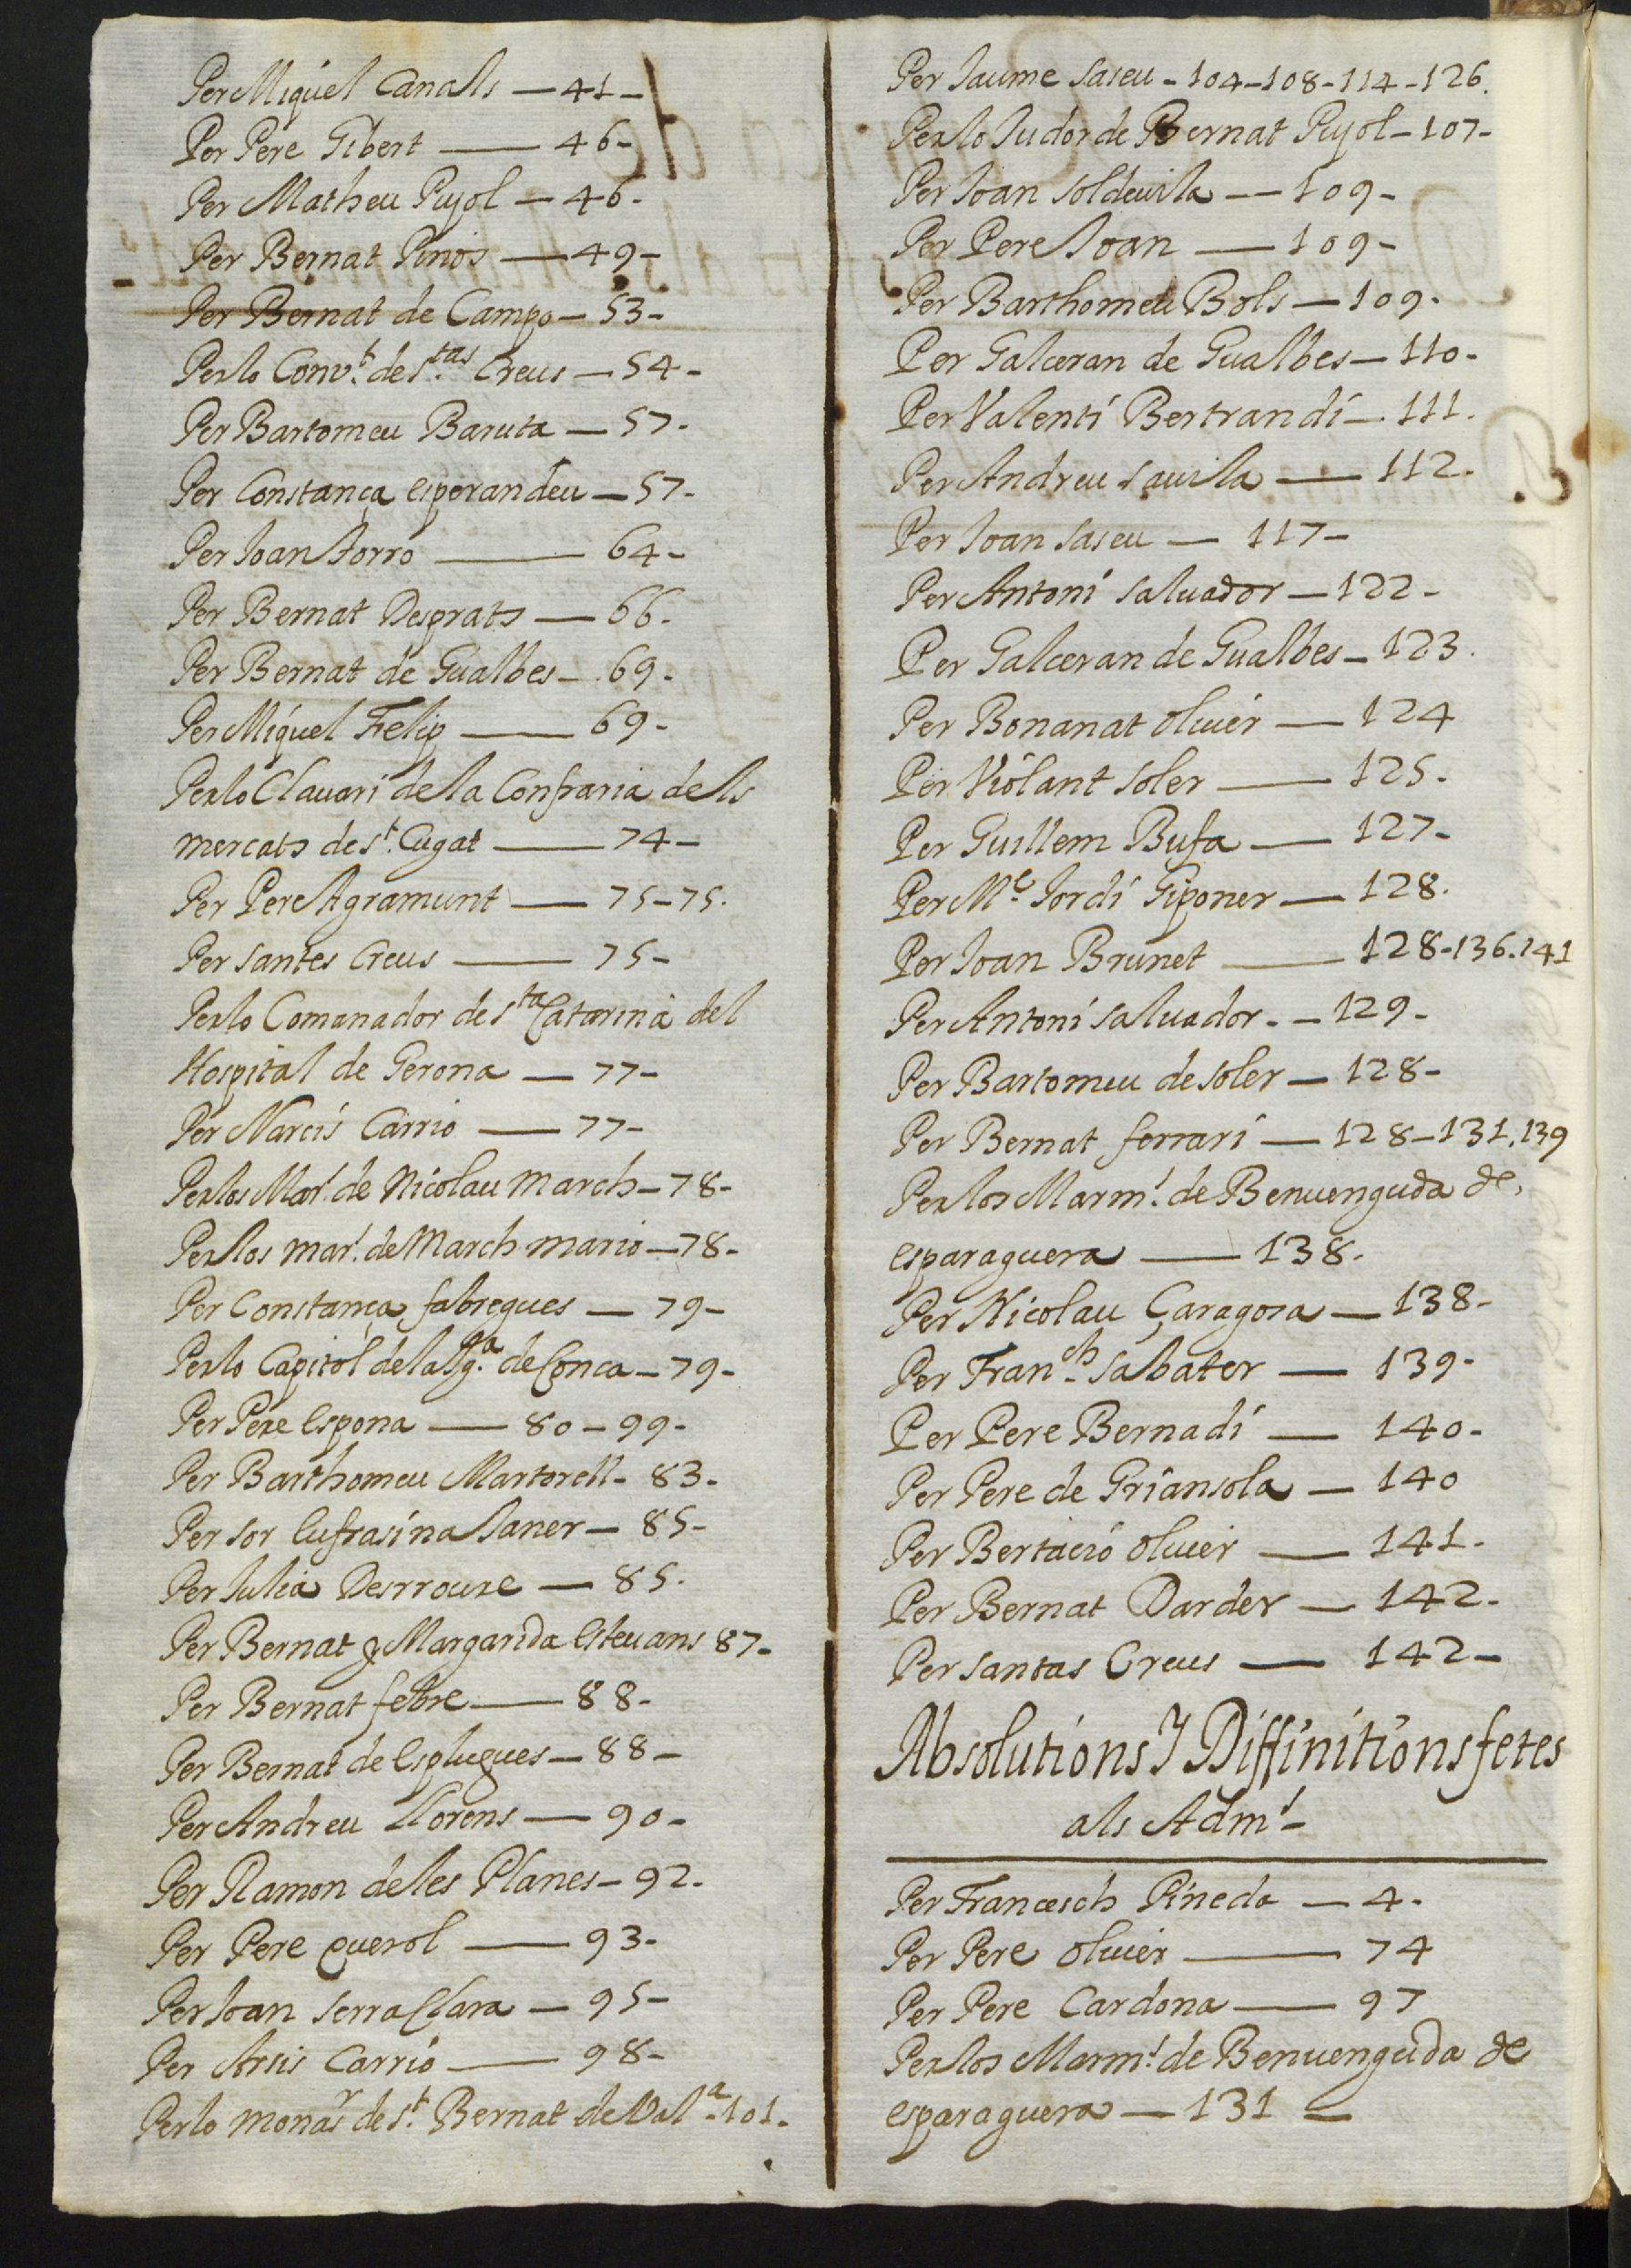 Per Miquel Canals — 41 -
Per Pere Gibert — 46 -
Per Matheu Pujol — 46 -
Per Bernat Pinos — 49 -
Per Bernat de Campo — 53 -
Perlo Conv.t de s.tas Creus — 54 -
Per Bartomeu Baruta — 57 -
Per Constança esperandeu — 57 -
Per Joan Torro — 64 -
Per Bernat Desprats — 66 -
Per Bernat de Gualbes — 69 -
Per Miquel Felip — 69 -
Perlo Clauari de la Confraria dels
mercats de s.t Cugat — 74 -
Per Pere Agramunt — 75 - 75 -
Per santes Creus — 75 -
Perlo Comanador de s.ta Catarina del
Hospital de Gerona — 77 -
Per Narcis Carrio — 77 -
Perlos Mar.s de Nicolau March — 78 -
Perlos mar.s de March mario — 78 -
Per Constança fabregues — 79 -
Perlo Capitol dela Ig.a de Conca — 79 -
Per Pere Espona — 80 - 99 -
Per Barthomeu Martorell - 83 -
Per sor Eufrasina Janer — 85 -
Per Julia Desrroure — 85 -
Per Bernat y Margarida Esteuans 87 -
Per Bernat febre — 88 -
Per Bernat de Esplugues — 88 -
Per Andreu Llorens — 90 -
Per Ramon de les Planes — 92 -
Per Pere querol — 93 -
Per Joan serra Clara — 95 -
Per Arsis Carrio — 98 -
Perlo monar de s.t Bernat de Val.a - 101 -
Per Jaume saseu - 104 - 108 - 114 - 126.
Perlo tudor de Bernat Pujol - 107 -
Per Joan soldeuila — 109 -
Per Pere Joan — 109 -
Per Barthomeu Bols — 109 -
Per Galceran de Gualbes — 110 -
Per Valentí Bertrandí — 111.
Per Andreu sauila — 112 -
Per Joan saseu — 117 -
Per Antoni saluador — 122 -
Per Galceran de Gualbes — 123.
Per Bonanat oliuer — 124
Per Violant soler — 125 -
Per Guillem Bufa — 127 -
Per M.e Jordi Giponer — 128.
Per Joan Brunet — 128 - 136. 141
Per Antoni saluador - — 129 -
Per Bartomeu de soler — 128 -
Per Bernat ferrari — 128 - 131. 139
Perlos Marm.s de Benuenguda de
esparaguera — 138 -
Per Nicolau Çaragosa — 138 -
Per Fran.ch sabater — 139 -
Per Pere Bernadí — 140 -
Per Pere de Griansola — 140
Per Bertacio oliuer — 141 -
Per Bernat Darder — 142 -
Per santas Creus — 142 -
Absolutions Y Diffinitions fetes
als Adm.s -
Per Francesch Pineda — 4 -
Per Pere oliuer — 74
Per Pere Cardona — 97
Perlos Marm.s de Benuenguda de
esparaguera — 131 —